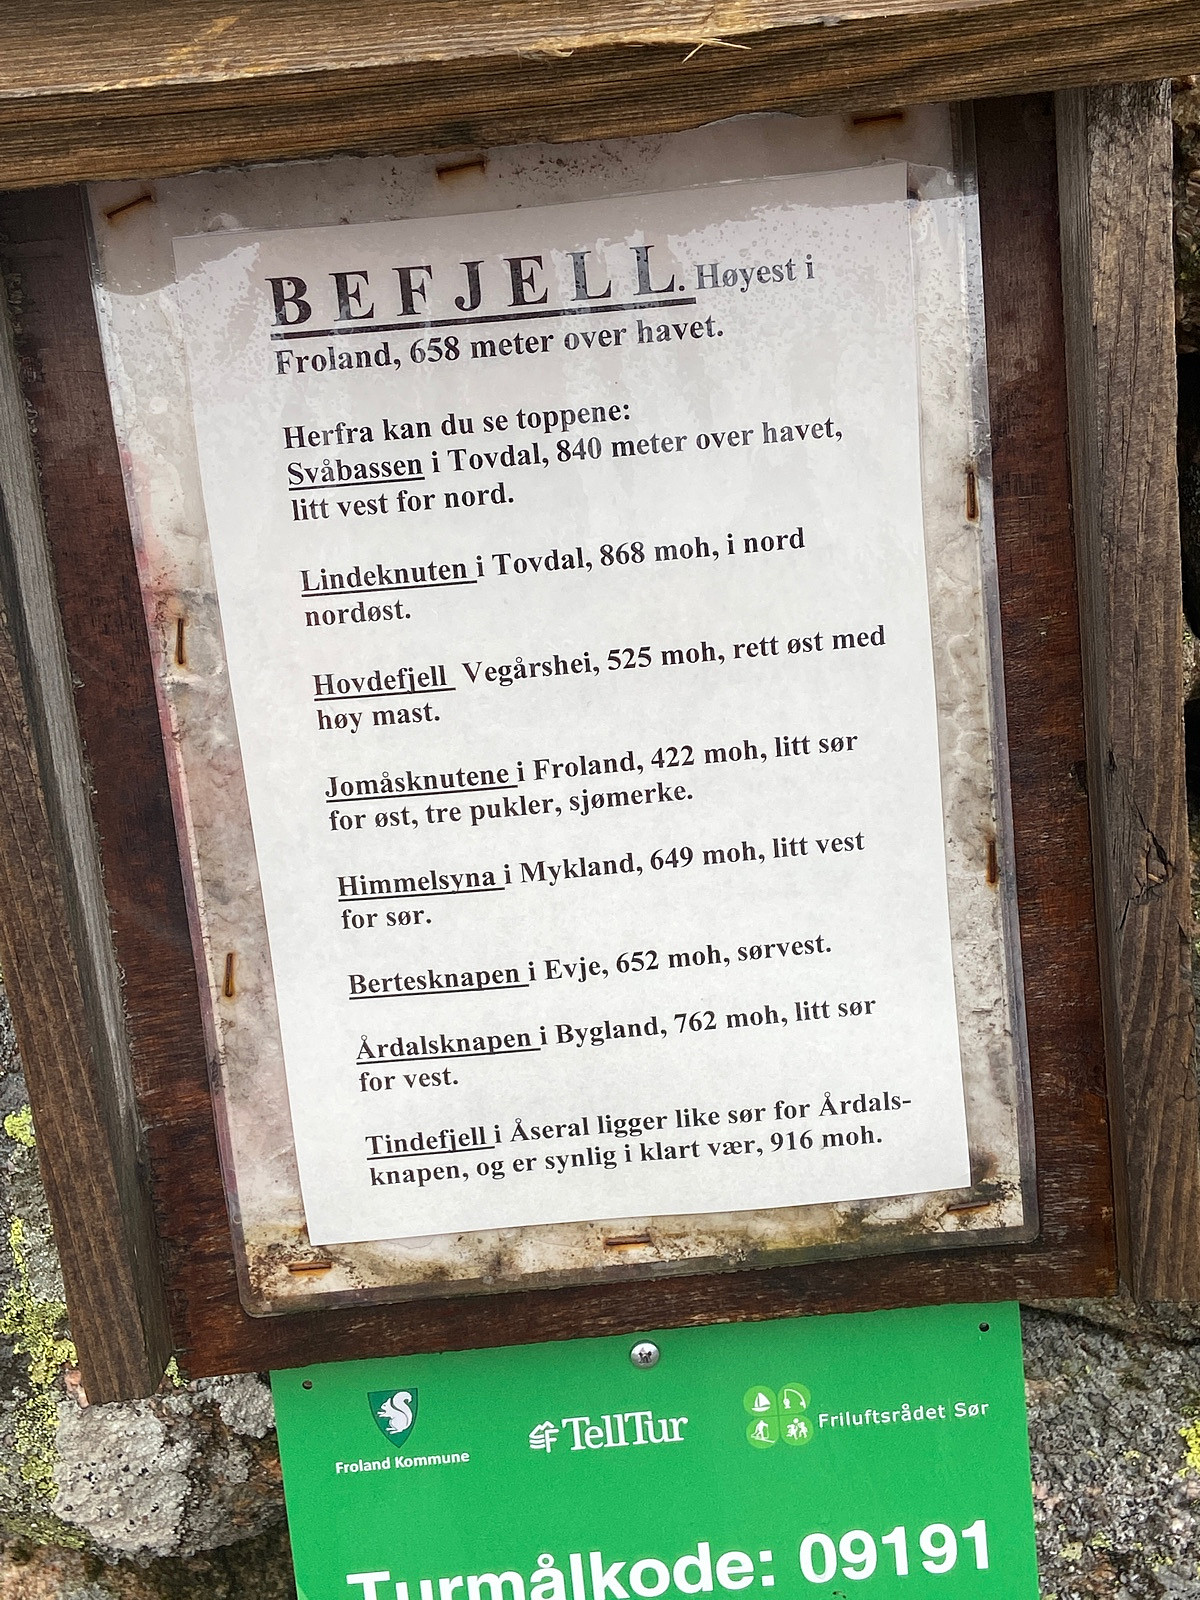 BEFJELL. Høyest i
Froland, 658 meter over havet.
Herfra kan du se toppene:
Svåbassen i Tovdal, 840 meter over havet,
litt vest for nord.
Lindeknuten i Tovdal, 868 moh, i nord
nordøst.
Hovdefjell Vegårshei, 525 moh, rett øst med
høy mast.
Jomåsknutene i Froland, 422 moh, litt sør
for øst, tre pukler, sjømerke.
Himmelsyna i Mykland, 649 moh, litt vest
for sør.
Bertesknapen i Evje, 652 moh, sørvest.
Årdalsknapen i Bygland, 762 moh, litt sør
for vest.
Tindefjell i Åseral ligger like sør for Årdals-
knapen, og er synlig i klart vær, 916 moh.
Froland Kommune
TellTur
Friluftsrådet Sør
Turmålkode: 09191